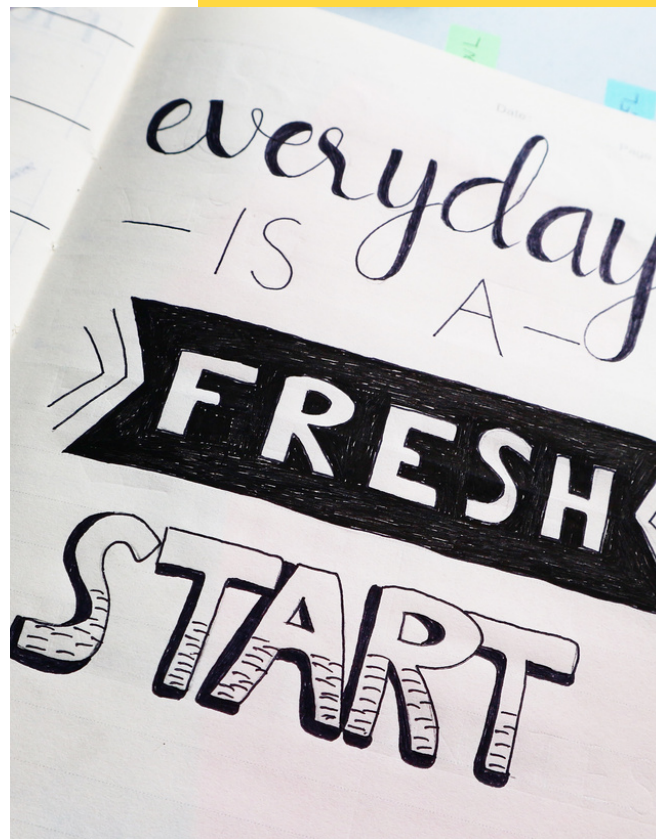 everyday
— IS A —
FRESH
START
Date